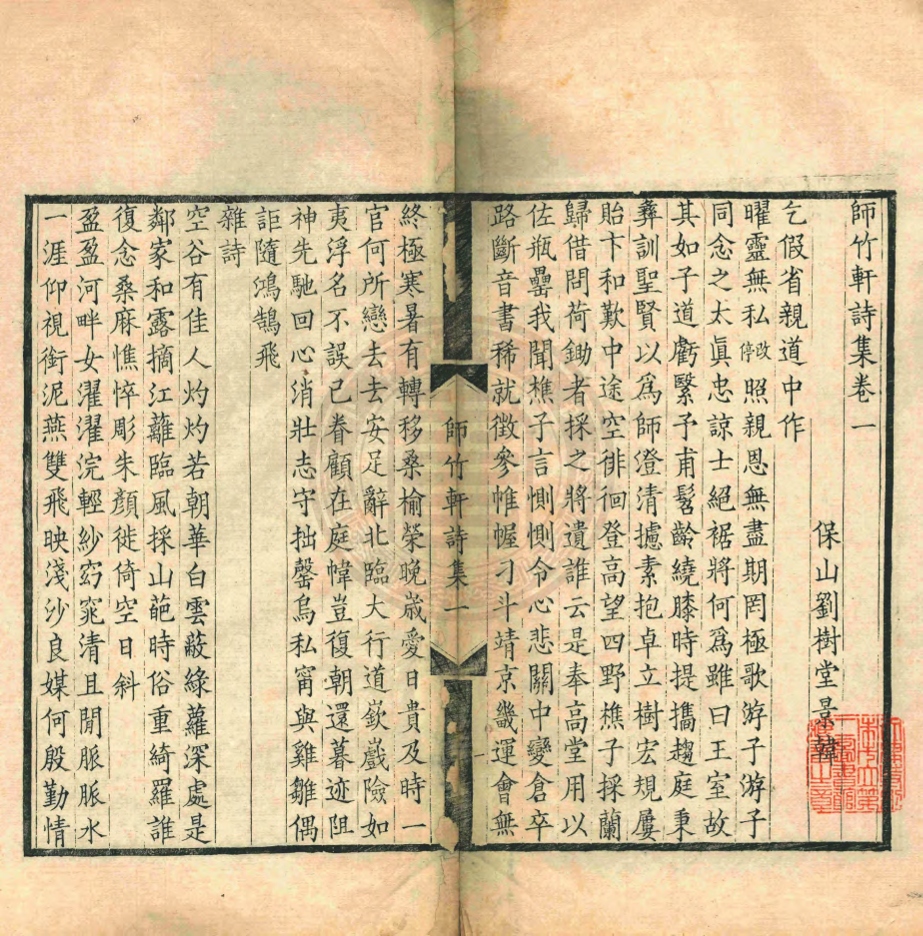 師竹軒詩集卷一
保山劉樹堂景韓
乞假省親道中作
曜靈無私照親恩無盡期罔極歌游子游子
停改
同念之太眞忠諒士絕裾將何爲雖曰王室故
其如子道虧緊予甫髫齡繞膝時提攜趨庭秉
彝訓聖賢以爲師澄清攄素抱卓立樹宏規屢
貽卞和歎中途空徘徊登高望四野樵子採蘭
歸借問荷鋤者採之將遺誰云是奉高堂用以
佐瓶罍我聞樵子言惻惻令心悲關中變倉卒
路斷音書稀就徵參帷幄刁斗靖京畿運會無
師竹軒詩集一
一
終極寒暑有轉移桑榆榮晚歲愛日貴及時一
官何所戀去去安足辭北臨大行道嶔巇險如
夷浮名不誤已眷顧在庭幃豈復朝還暮迹阻
神先馳回心消壯志守拙罄烏私甯與雞雛偶
詎隨鴻鵠飛
雜詩
空谷有佳人灼灼若朝華白雲蔽綠蘿深處是
鄰家和露摘江蘺臨風採山葩時俗重綺羅誰
復念桑麻憔悴彫朱顏徙倚空日斜
盈盈河畔女濯濯浣輕紗窈窕清且閒脈脈水
一涯仰視銜泥燕雙飛映淺沙良媒何殷勤情